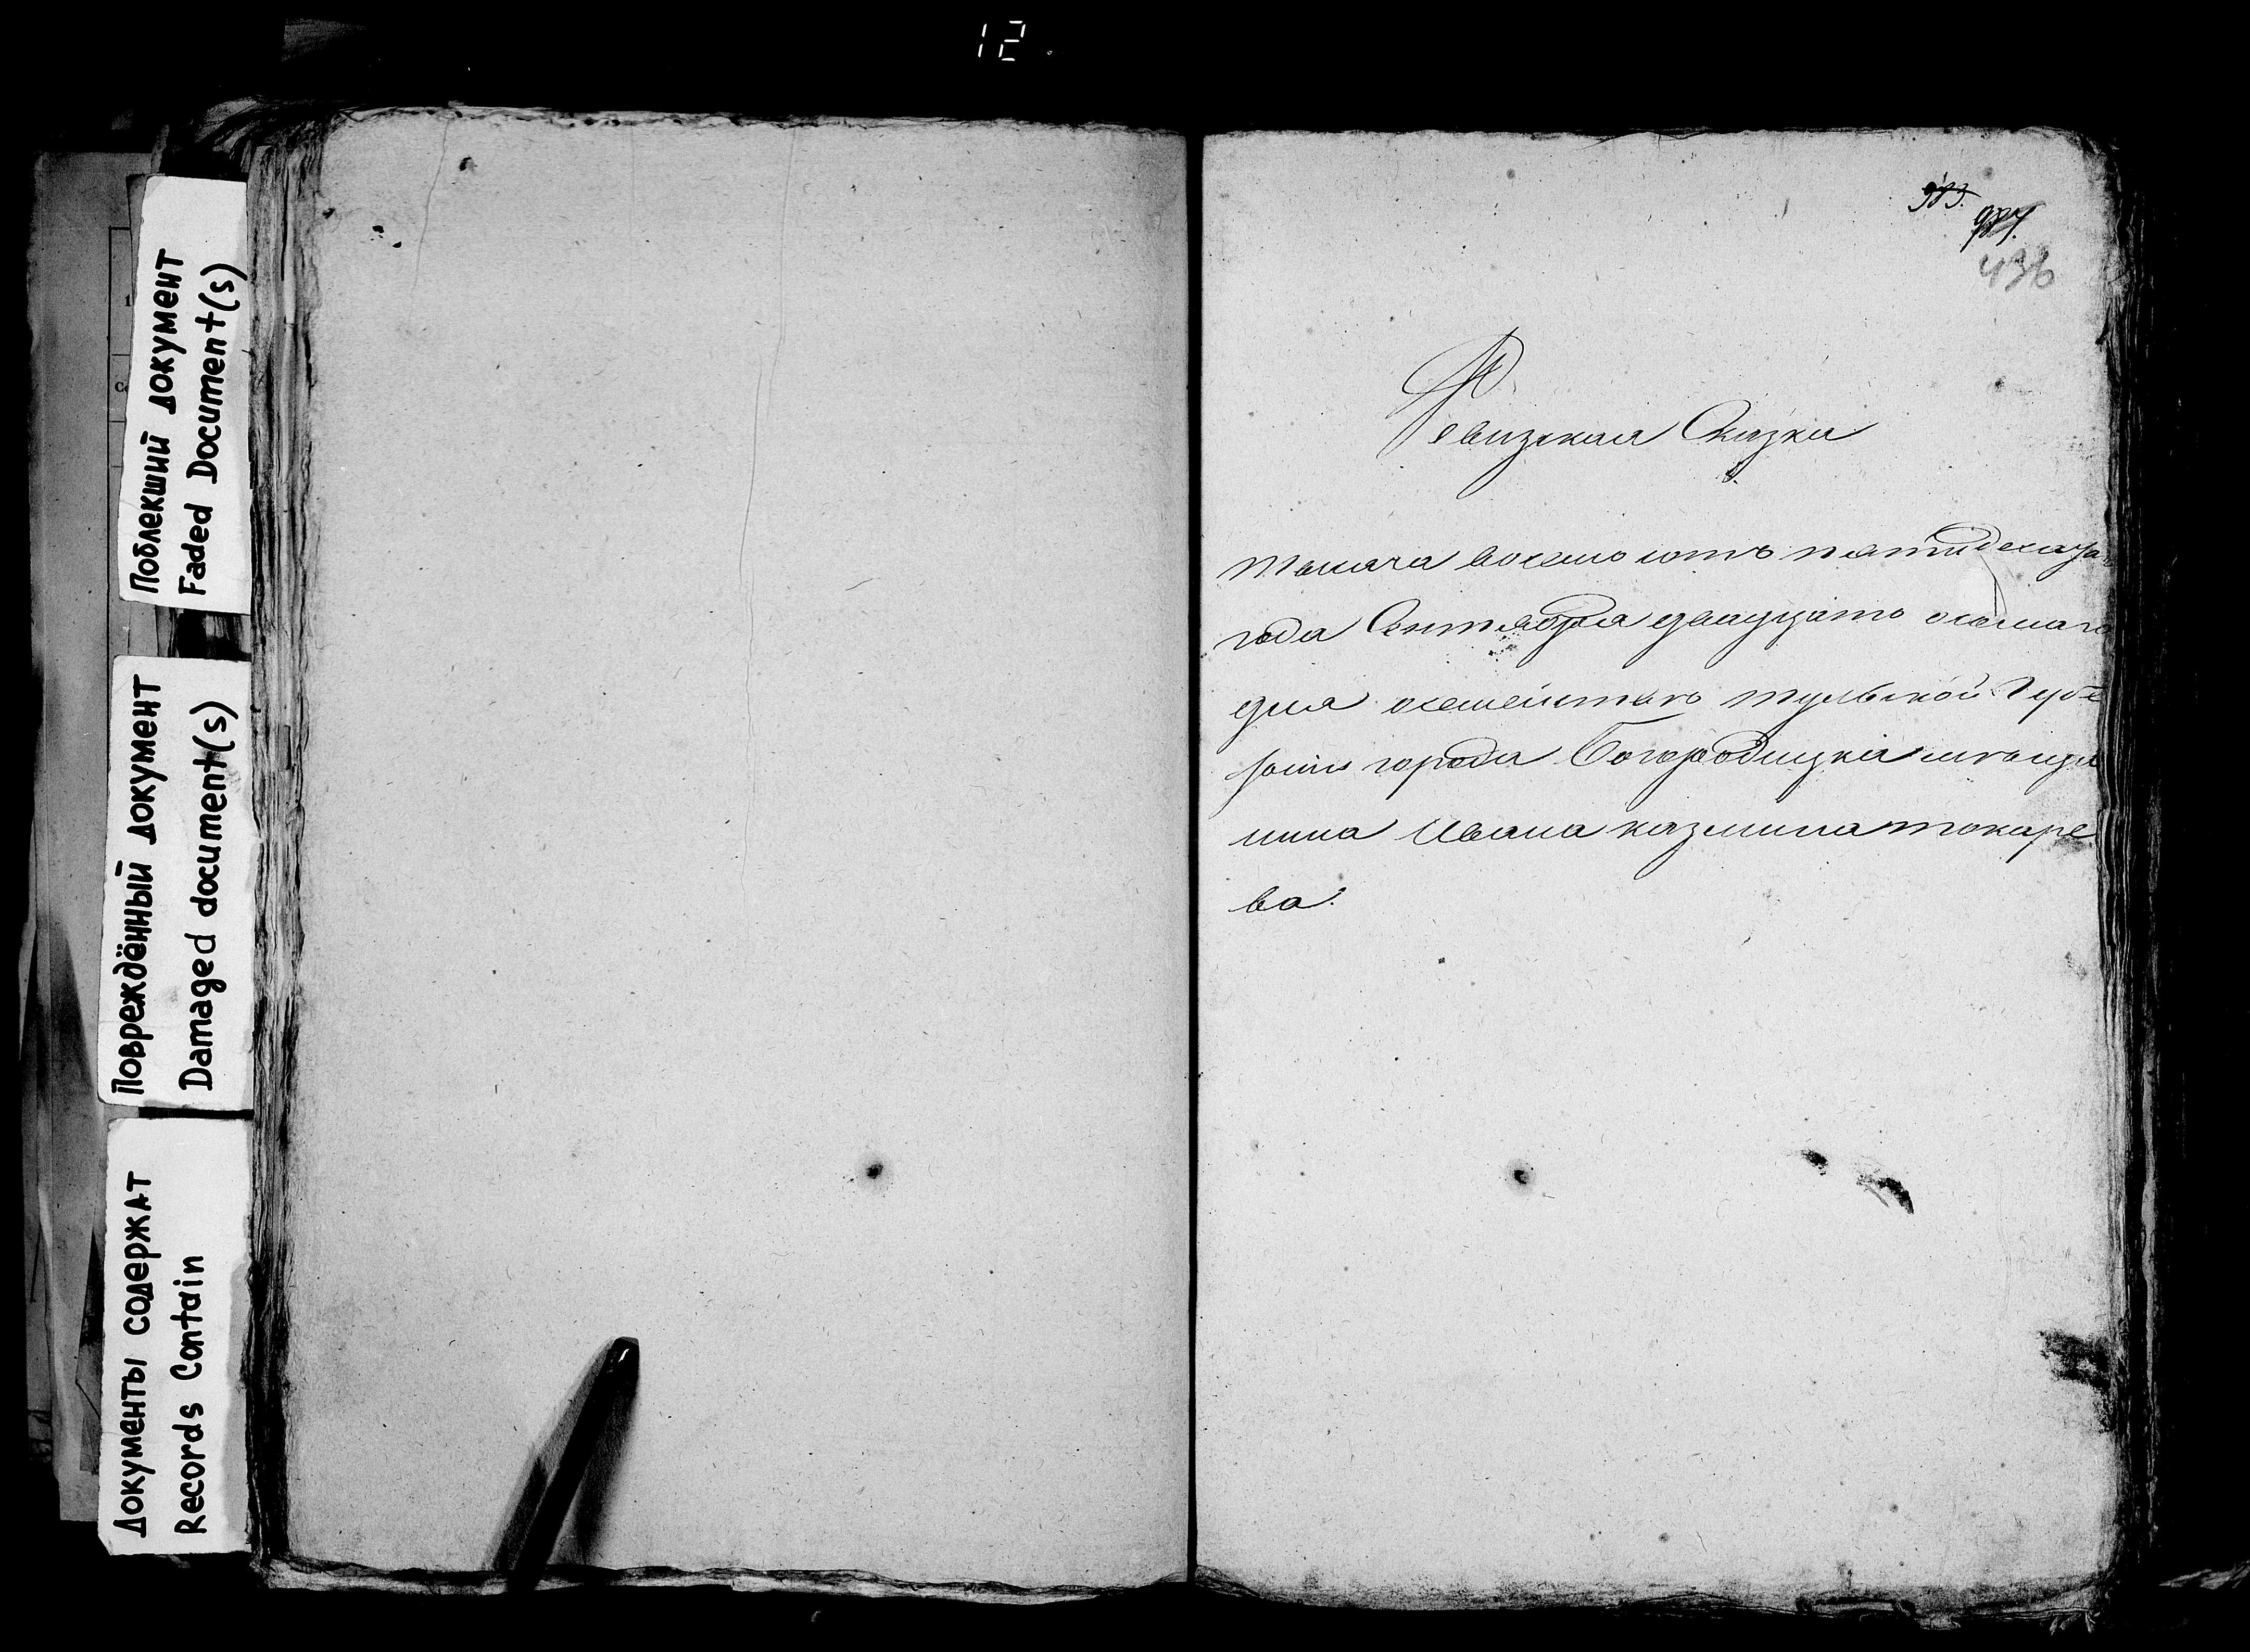 12
Поблекший документ
Faded Document(s)
Повреждённый документ
Damaged document(s)
Документы содержат
Records Contain
436
Ревизская Сказка
Тысяча восемь сотъ пятидесята
года Сентября двадцать осьмаго
дня осемействѣ тульской Губе
рніи города Богородицка мѣщя
нина Ивана казмина токаре
ва.